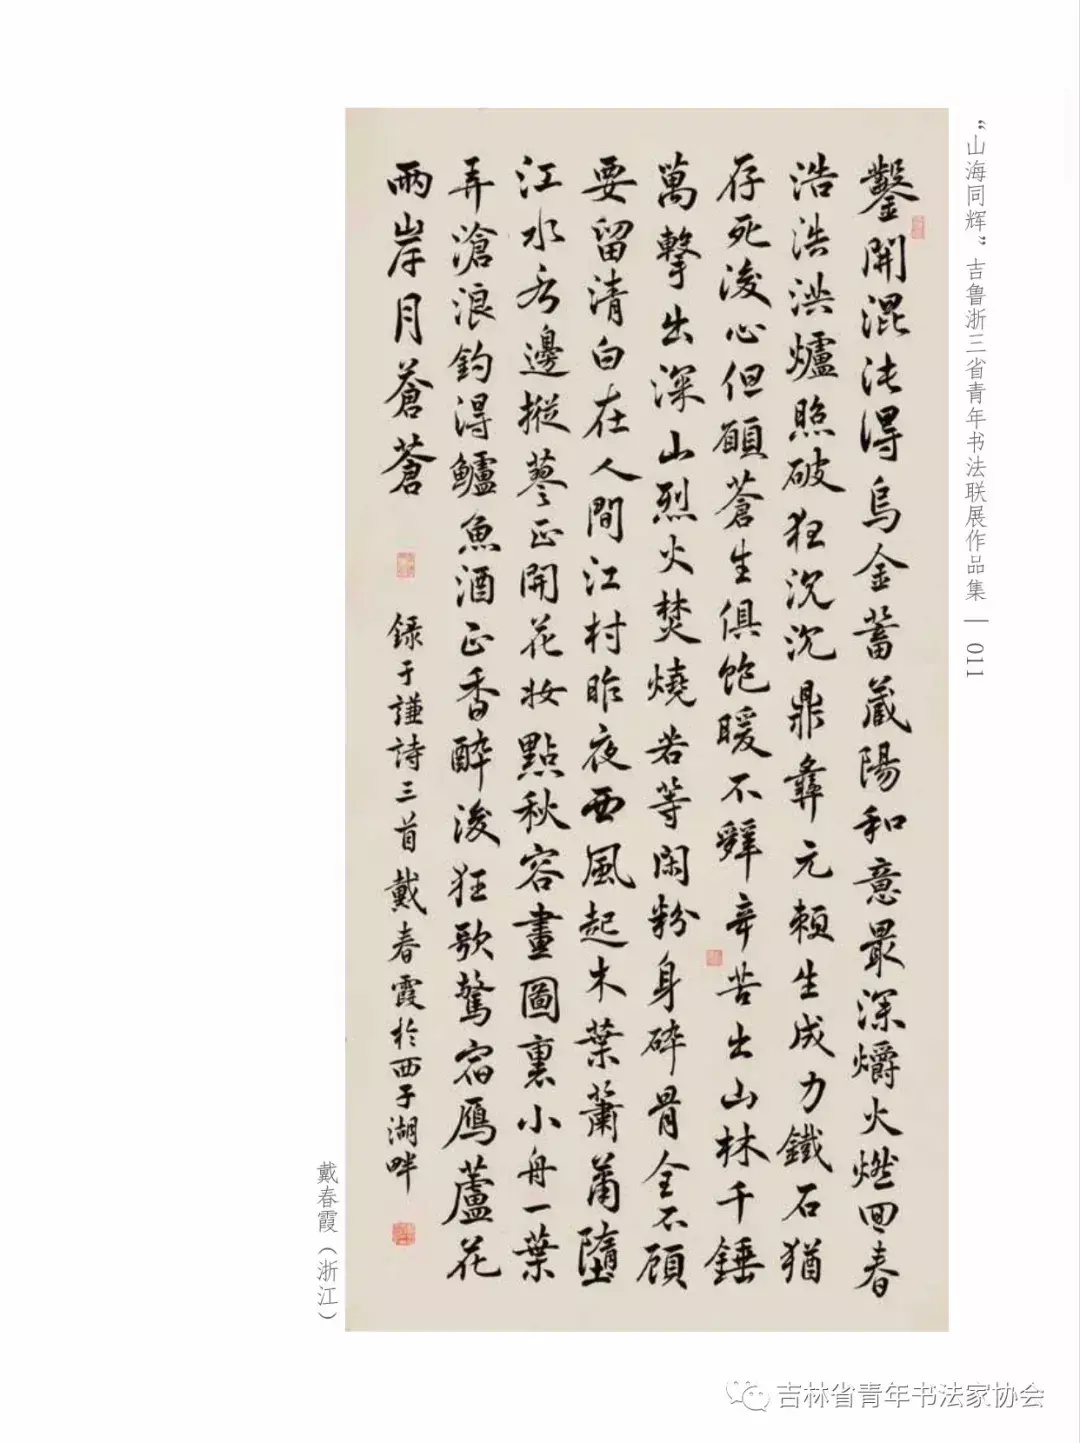 “山海同辉”吉鲁浙三省青年书法联展作品集 | 011
鑿開混沌得烏金蓄藏陽和意最深爝火燃回春
浩浩洪爐照破狂沉沉鼎彝元賴生成力鐵石猶
存死後心但願蒼生俱飽暖不辤辛苦出山林千錘
萬擊出深山烈火焚燒若等閑粉身碎骨全不顧
要留清白在人間江村昨夜西風起木葉蕭蕭墮
江水水邊摐蓼正開花妝點秋容畫圖裏小舟一葉
弄滄浪釣得鱸魚酒正香醉後狂歌驚宿鴈蘆花
兩岸月蒼蒼
録于謙詩三首戴春霞於西子湖畔
戴春霞（浙江）
吉林省青年书法家协会